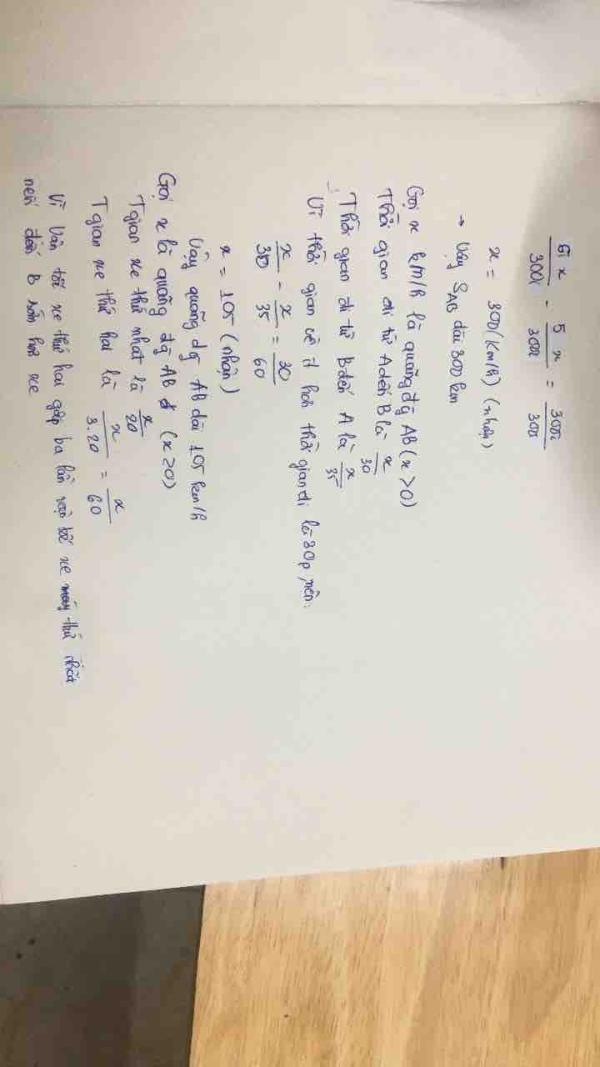 6x/300 - 5x/300 = 300/300
x = 300 (Km/h) (nhận)
→ Vậy SAB dài 300 km
Gọi x km/h là quãng đg AB (x > 0)
Thời gian đi từ A đến B là x/30
Thời gian đi từ B đến A là x/35
Vì thời gian về ít hơn thời gian đi là 30p nên:
x/30 - x/35 = 30/60
x = 105 (nhận)
Vậy quãng đg AB dài 105 km/h
Gọi x là quãng đg AB (x > 0)
T gian xe thứ nhất là x/20
T gian xe thứ hai là x/3.20 = x/60
Vì vân tốc xe thứ hai gấp ba lần vận tốc xe máy thứ nhất
nên đến B sớm hơn xe